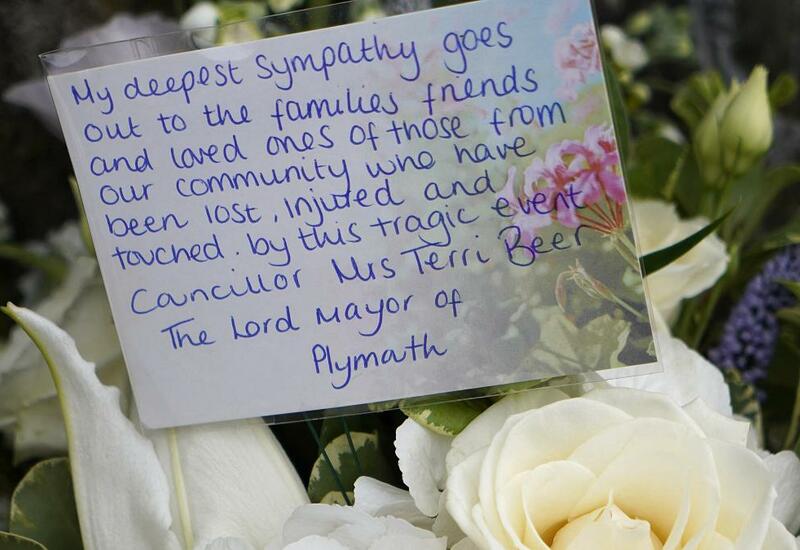 My deepest sympathy goes
out to the families friends
and loved ones of those from
our community who have
been lost, injured and
touched. by this tragic event
Councillor Mrs Terri Beer
The Lord Mayor of
Plymouth